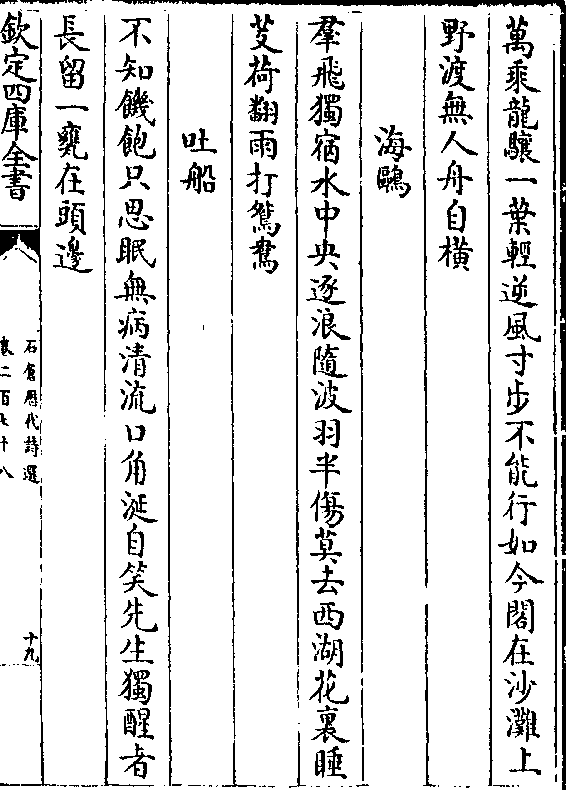 萬乘龍驤一葉輕逆風寸步不能行如今閣在沙灘上
野渡無人舟自橫
海鷗
羣飛獨宿水中央逐浪隨波羽半傷莫去西湖花裏睡
芰荷翻雨打鴛鴦
吐船
不知饑飽只思眠無病清流口角涎自笑先生獨醒者
長留一甕在頭邊
欽定四庫全書
石倉歷代詩選
卷二百七十八
十九